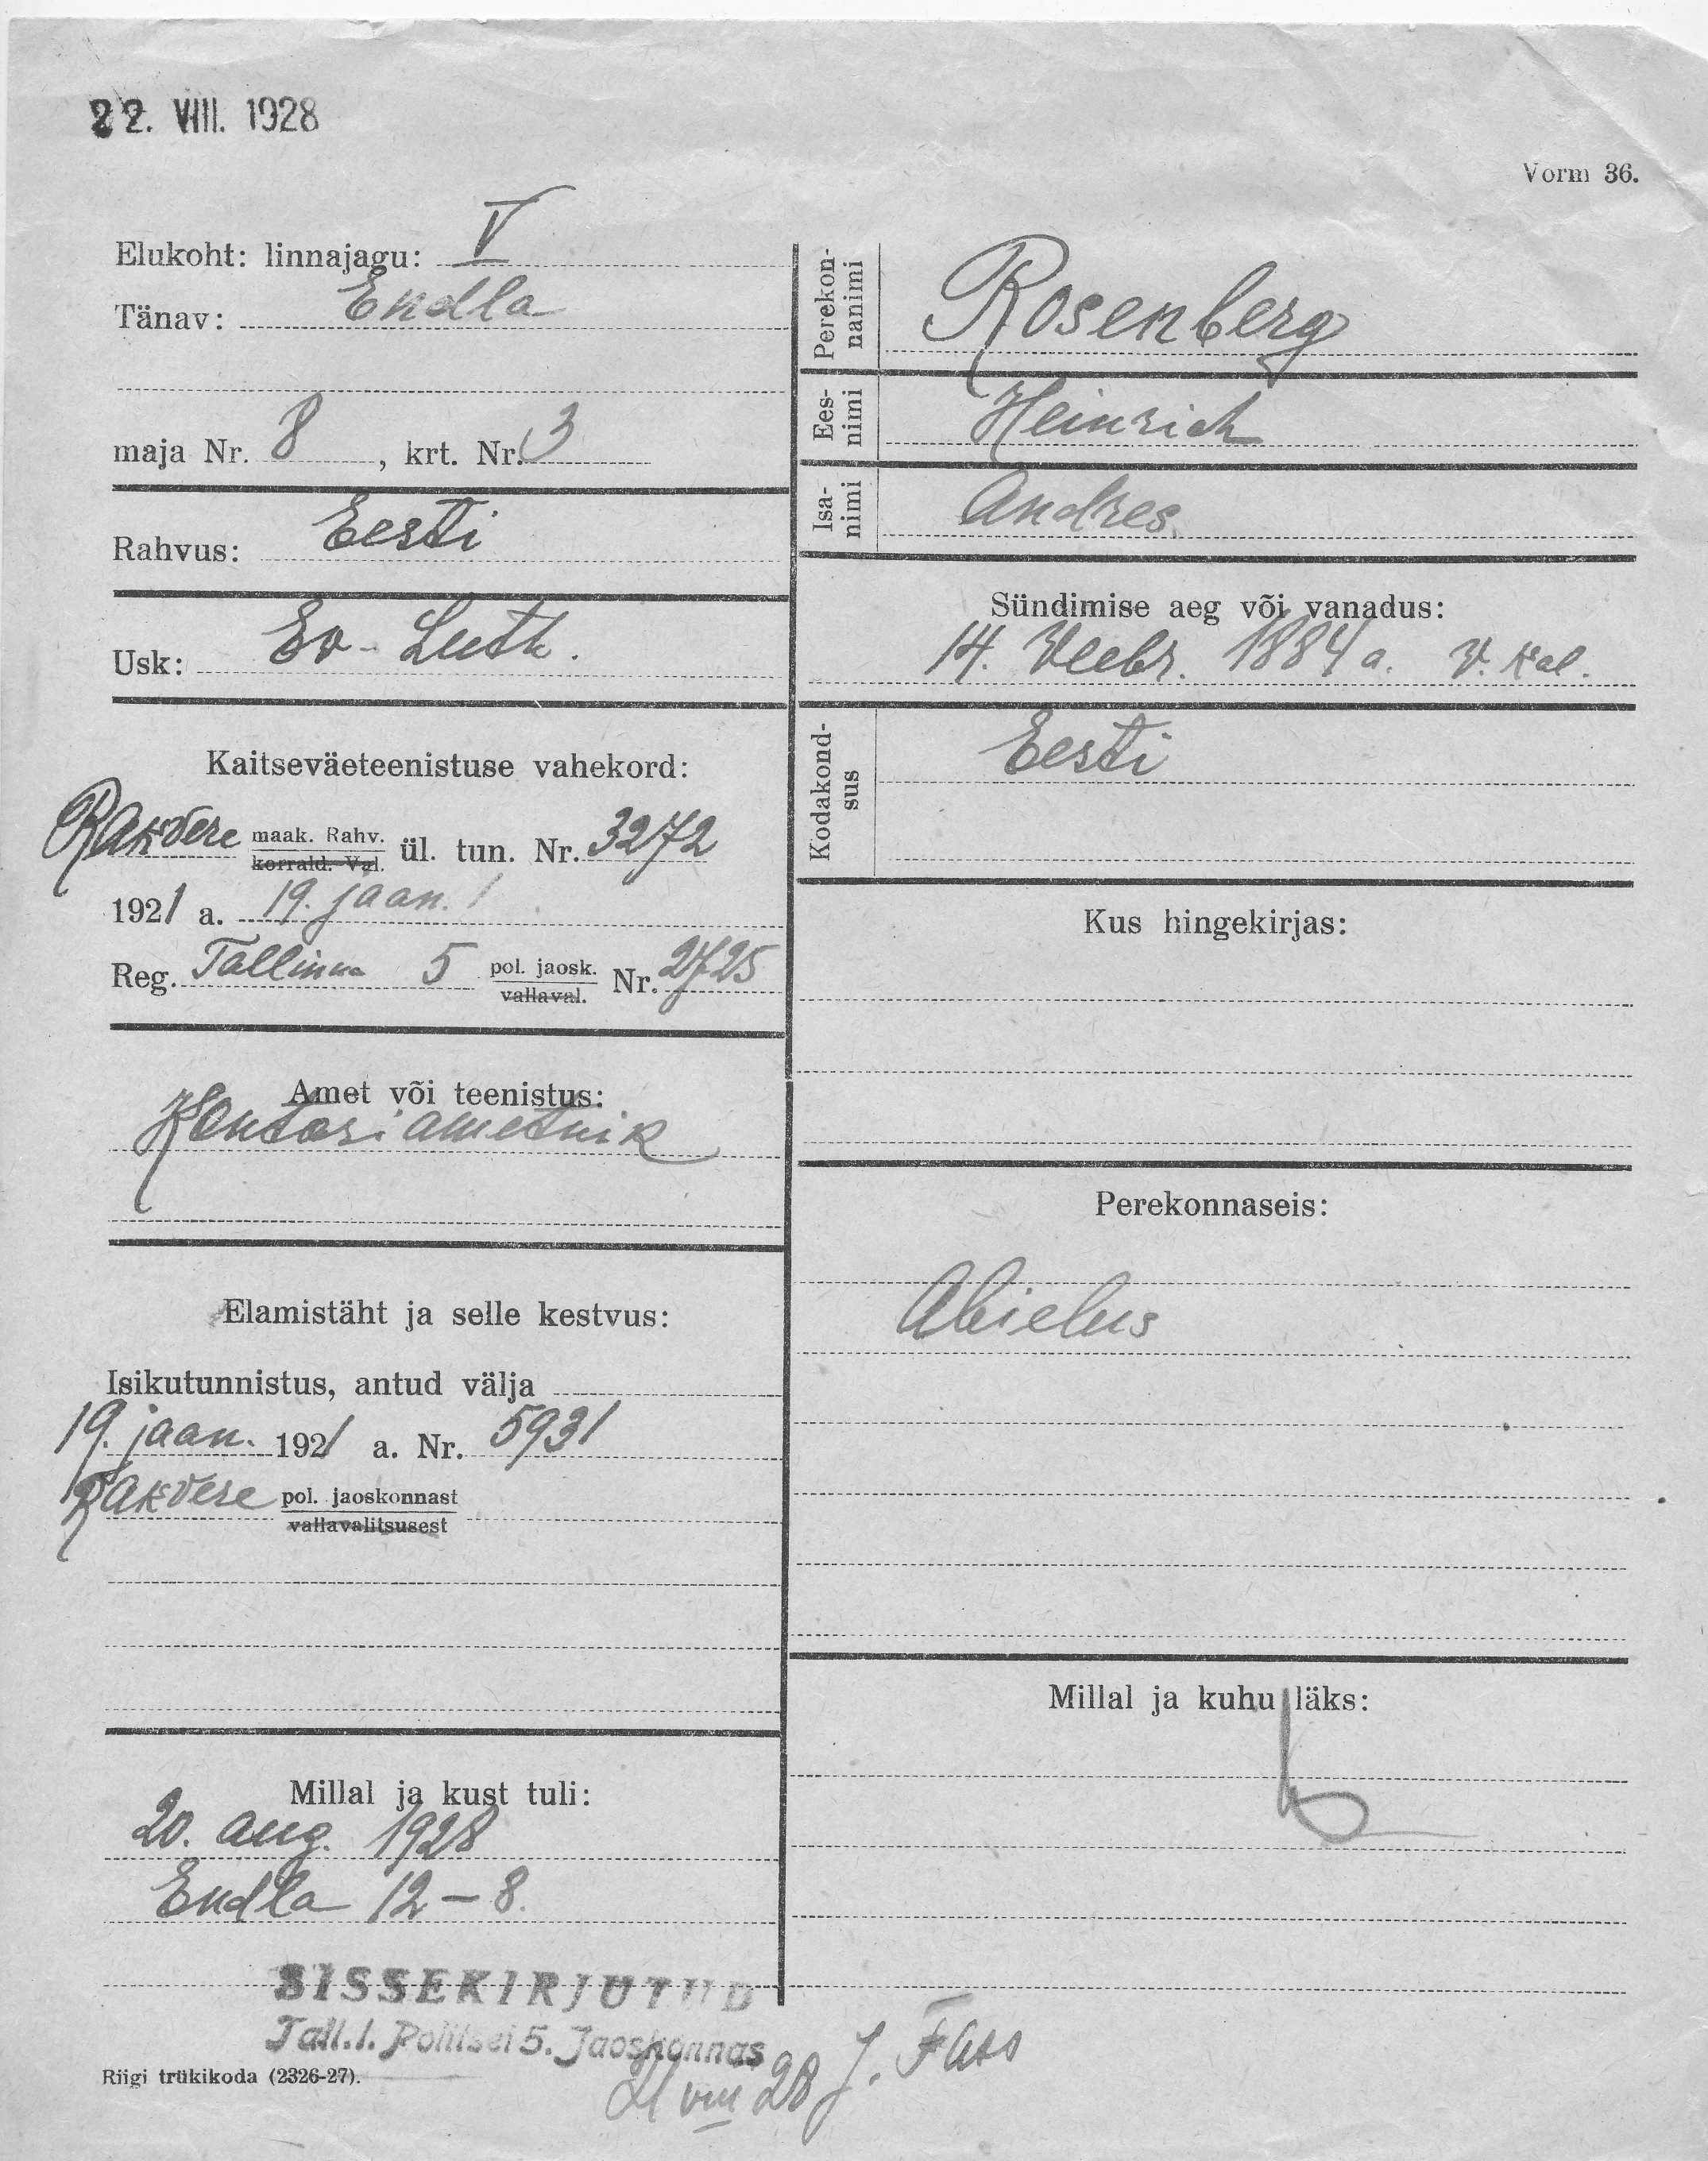 22. VIII. 1928
Vorm 36.
Elukoht: linnajagu: V
Tänav: Endla
maja Nr. 8, krt. Nr. 3
Rahvus: Eesti
Usk: Ev-Luth.
Kaitseväeteenistuse vahekord:
Rakvere maak. Rahv. korrald. Val. ül. tun. Nr. 3272
1921 a. 19. jaan.
Reg. Tallinna 5 pol. jaosk. vallaval. Nr. 2725
Amet või teenistus:
Kontoriametnik
Elamistäht ja selle kestvus:
Isikutunnistus, antud välja
19. jaan. 1921 a. Nr. 5931
Rakvere pol. jaoskonnast
vallavalitsusest
Millal ja kust tuli:
20. aug. 1928
Endla 12-8.
SISSEKIRJUTUD
Tall.l. Politsei 5. Jaoskonnas
Riigi trükikoda (2326-27).
Perekon-
nanimi
Rosenberg
Ees-
nimi
Heinrich
Isa-
nimi
Andres
Sündimise aeg või vanadus:
14. Veebr. 1884 a. v. kal.
Kodakond-
sus
Eesti
Kus hingekirjas:
Perekonnaseis:
Abielus
Millal ja kuhu läks:
VIII 28 J. Fass